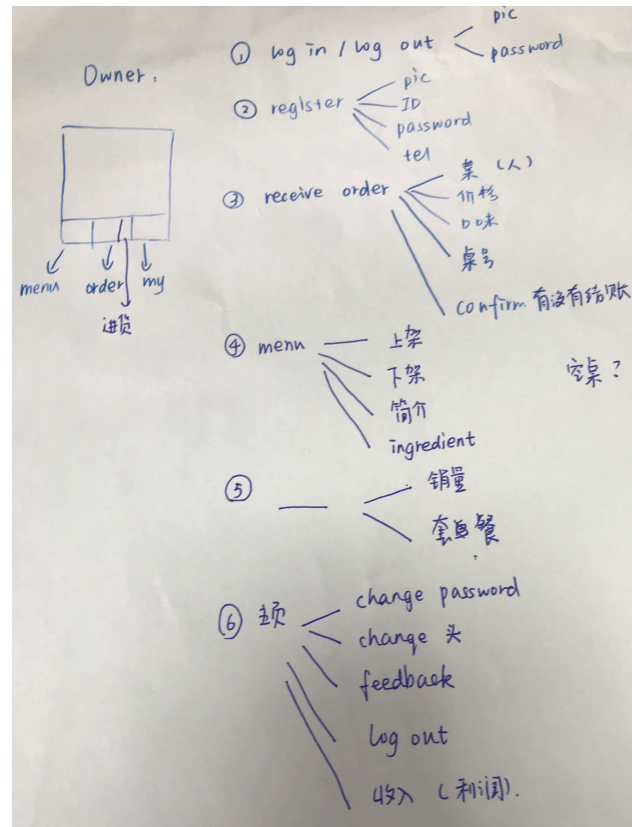 Owner.
① log in / log out
pic
password
② register
pic
ID
password
tel
③ receive order
菜 (人)
价格
口味
桌号
confirm 有没有结账
menu
order
my
进货
④ menu
上架
下架
简介
ingredient
空桌?
⑤ —
销量
套餐
⑥ 主页
change password
change 头
feedback
log out
收入 (利润).